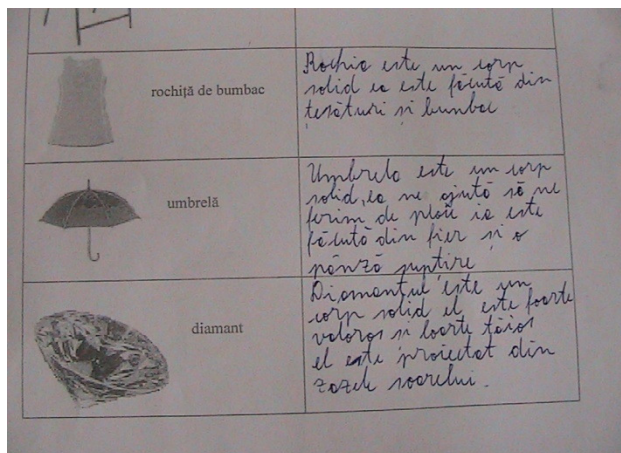 rochiță de bumbac
Rochia este un corp
solid ea este făcută din
țesături și bumbac
umbrelă
Umbrela este un corp
solid, ea ne ajută să ne
ferim de ploii ea este
făcută din fier și o
pânză supțire
diamant
Diamantul este un
corp solid el este foarte
valoros și foarte tăios
el este proiectat din
razele soarelui.